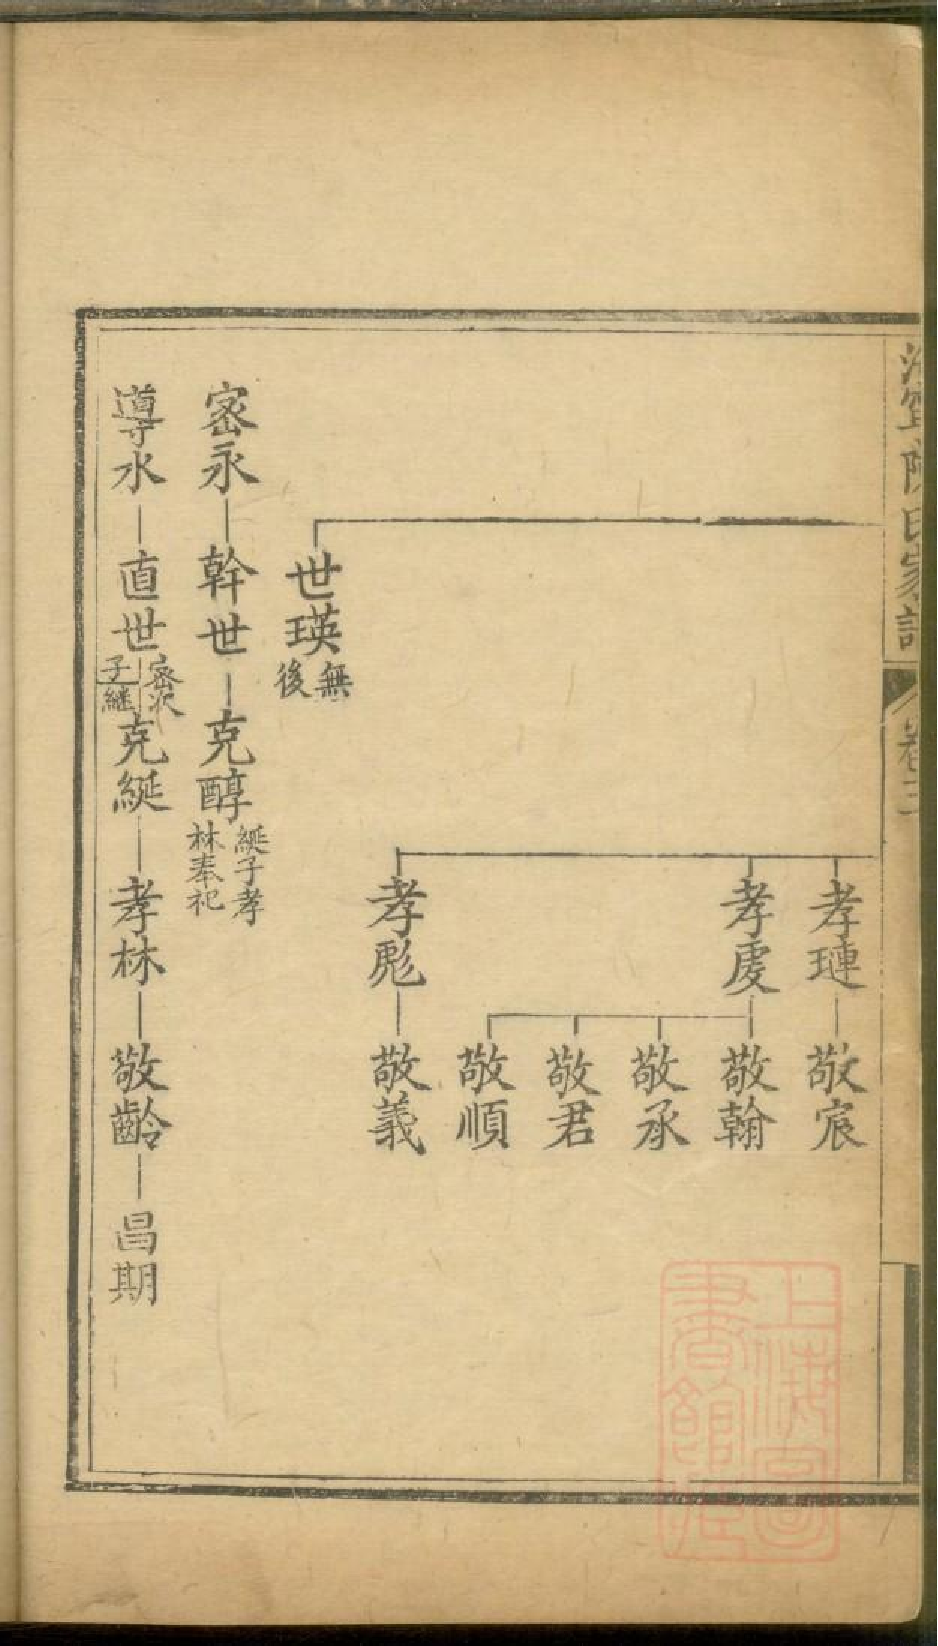 海寧陳氏家譜
卷三
孝璉 敬宸
孝虔 敬翰
敬承
敬君
敬順
孝彪 敬義
世瑛 無後
密永 幹世 克醇 綖子孝林奉祀
導水 直世 密次子繼 克綖 孝林 敬齡 昌期
上海圖書館藏